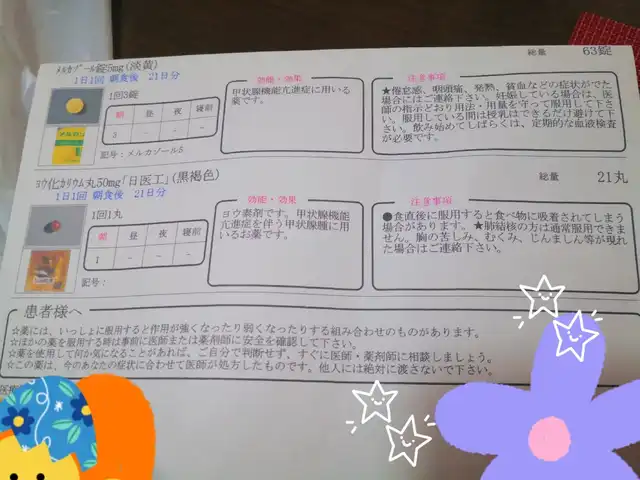 総量 63錠
ﾒﾙｶｿﾞｰﾙ錠5mg(淡黄)
1日1回 朝食後 21日分
1回3錠
朝 昼 夜 寝前
3 - - -
記号:メルカゾール5
効能・効果
甲状腺機能亢進症に用いる
薬です。
注意事項
★倦怠感、咽頭痛、発熱、貧血などの症状がでた
場合にはご連絡下さい。妊娠している場合は、医
師の指示どおり用法・用量を守って服用して下さ
い。服用している間は授乳はできるだけ避けて下
さい。飲み始めてしばらくは、定期的な血液検査
が必要です。
総量 21丸
ﾖｳ化ｶﾘｳﾑ丸50mg「日医工」(黒褐色)
1日1回 朝食後 21日分
1回1丸
朝 昼 夜 寝前
1 - - -
記号:
効能・効果
ヨウ素剤です。甲状腺機能
亢進症を伴う甲状腺腫に用
いるお薬です。
注意事項
●食直後に服用すると食べ物に吸着されてしまう
場合があります。★肺結核の方は通常服用できま
せん。胸の苦しみ、むくみ、じんましん等が現れ
た場合はご連絡下さい。
患者様へ
☆薬には、いっしょに服用すると作用が強くなったり弱くなったりする組み合わせのものがあります。
☆ほかの薬を服用する時は事前に医師または薬剤師に安全を確認して下さい。
☆薬を使用して何か気になることがあれば、ご自分で判断せず、すぐに医師・薬剤師に相談しましょう。
☆この薬は、今のあなたの症状に合わせて医師が処方したものです。他人には絶対に渡さないで下さい。